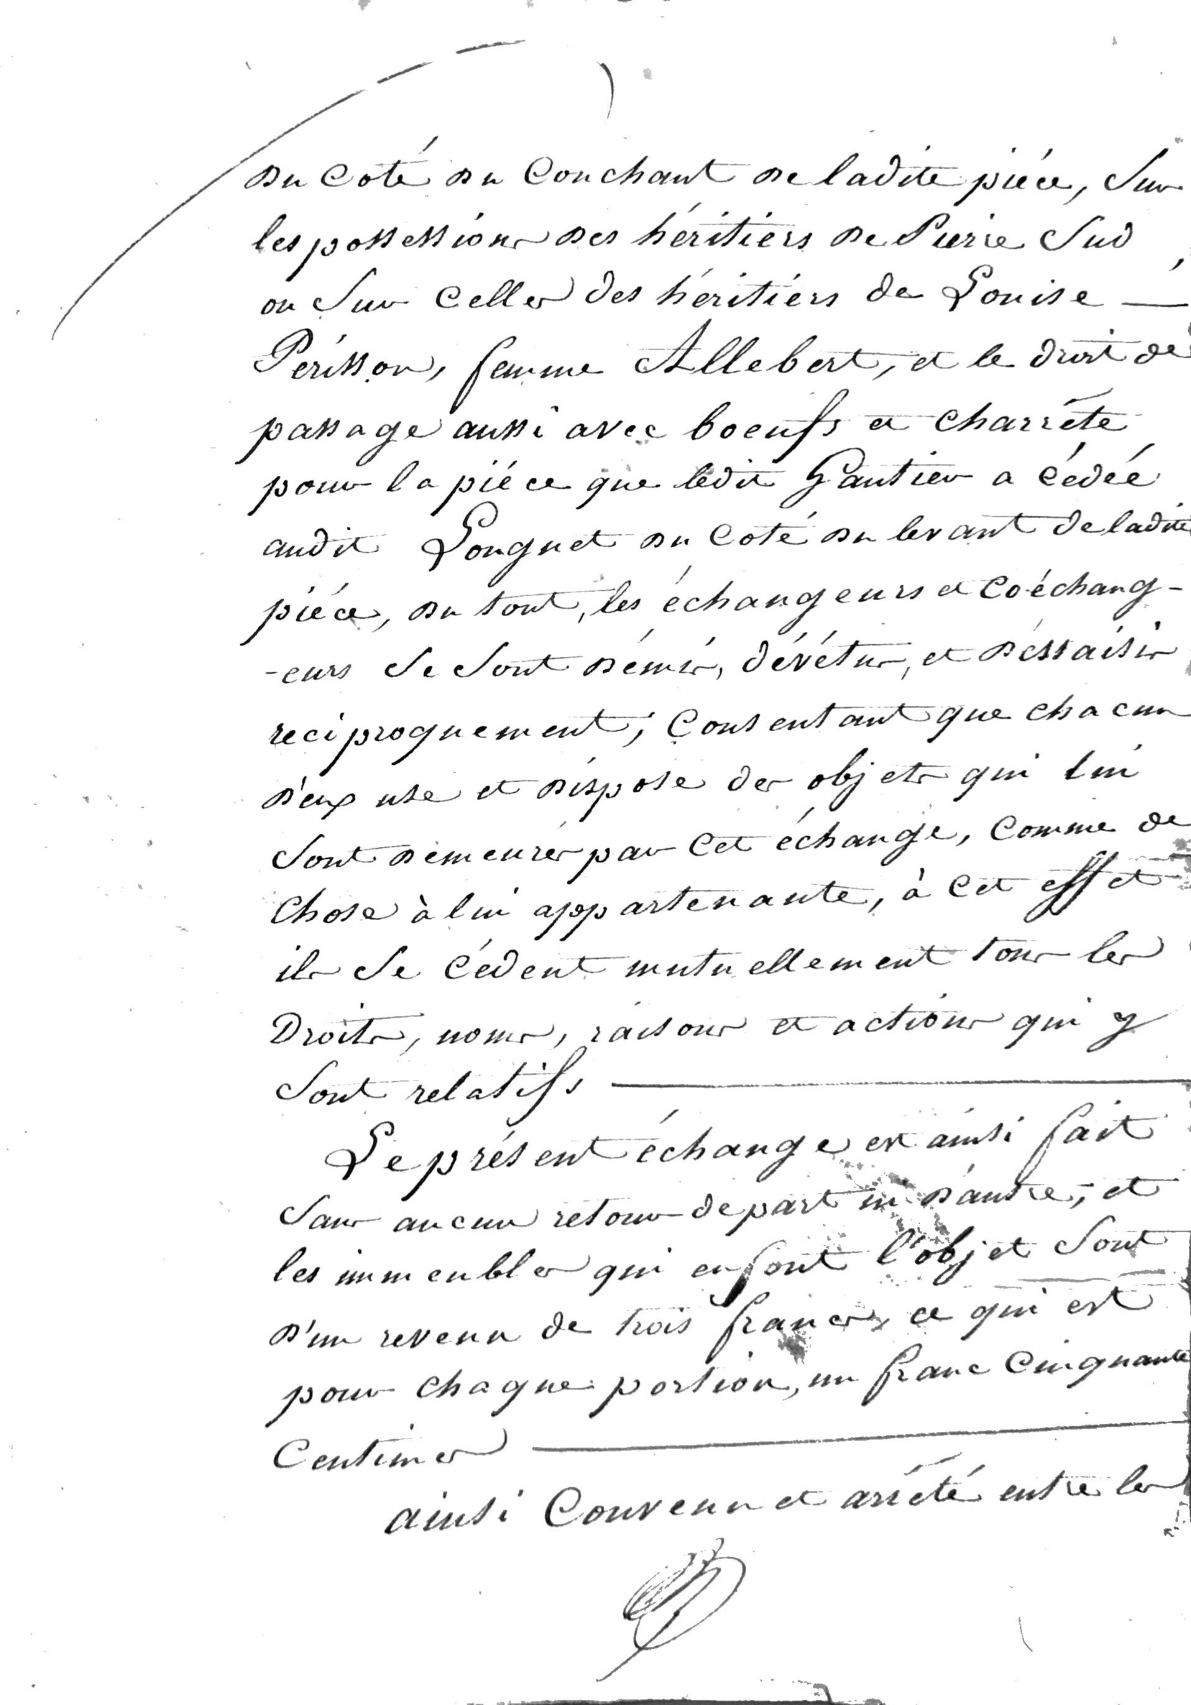 du coté du Couchant de ladite piéce, Sur
les possessions des héritiers de Pierre Sud,
ou Sur Celles des héritiers de Louise —
Périsson, femme Allebert, et le droit de
passage aussi avec boeufs et charrète
pour la piéce que ledit Gautier a cédée
audit Longuet du Coté du levant de ladite
piéce, du tout, les échangeurs et Co-échang-
-eurs Se Sont démis, dévétus, et déssaisis
reciproquement; Consentant que chacun
d'eux use et dispose des objets qui lui
Sont demeurés par Cet échange, Comme de
Chose à lui appartenante, à Cet effet
ils Se Cédent mutuellement tous les
Droits, noms, raisons et actions qui y
Sont relatifs —
Le présent échange est ainsi fait
Sans aucun retour de part ni d'autre, et
les immeubles qui en font l'objet Sont
d'un revenu de trois francs, ce qui est
pour chaque portion, un franc Cinquante
Centimes —
ainsi Convenu et arrété entre les